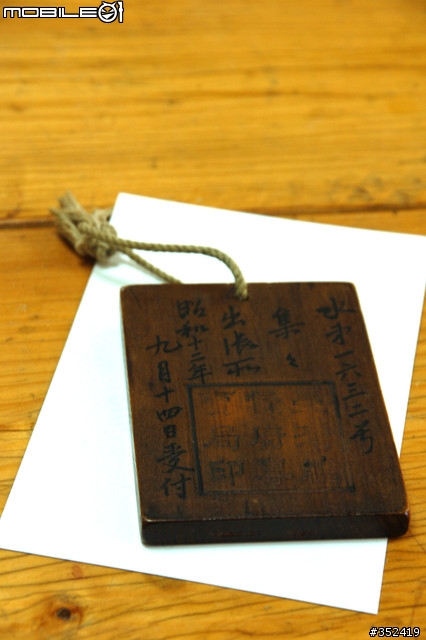 MOBILE01
水第一六三二号
集々
出張所
昭和十二年
九月十四日受付
#352419